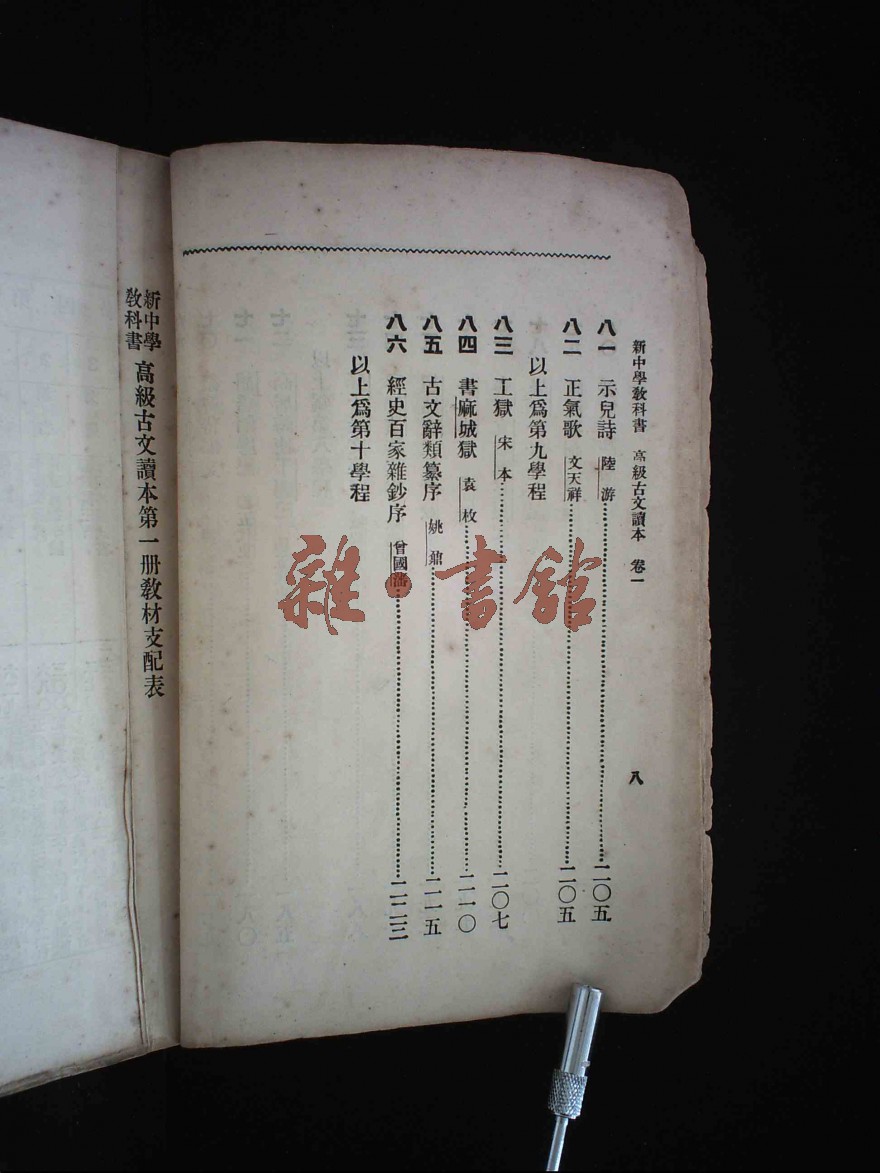 新中學教科書 高級古文讀本 卷一
八
八一 示兒詩 陸游 二〇五
八二 正氣歌 文天祥 二〇五
以上爲第九學程
八三 工獄 宋本 二〇七
八四 書麻城獄 袁枚 二一〇
八五 古文辭類纂序 姚鼐 二一五
八六 經史百家雜鈔序 曾國藩 二二三
以上爲第十學程
新中學
教科書
高級古文讀本第一册教材支配表
雜·書館